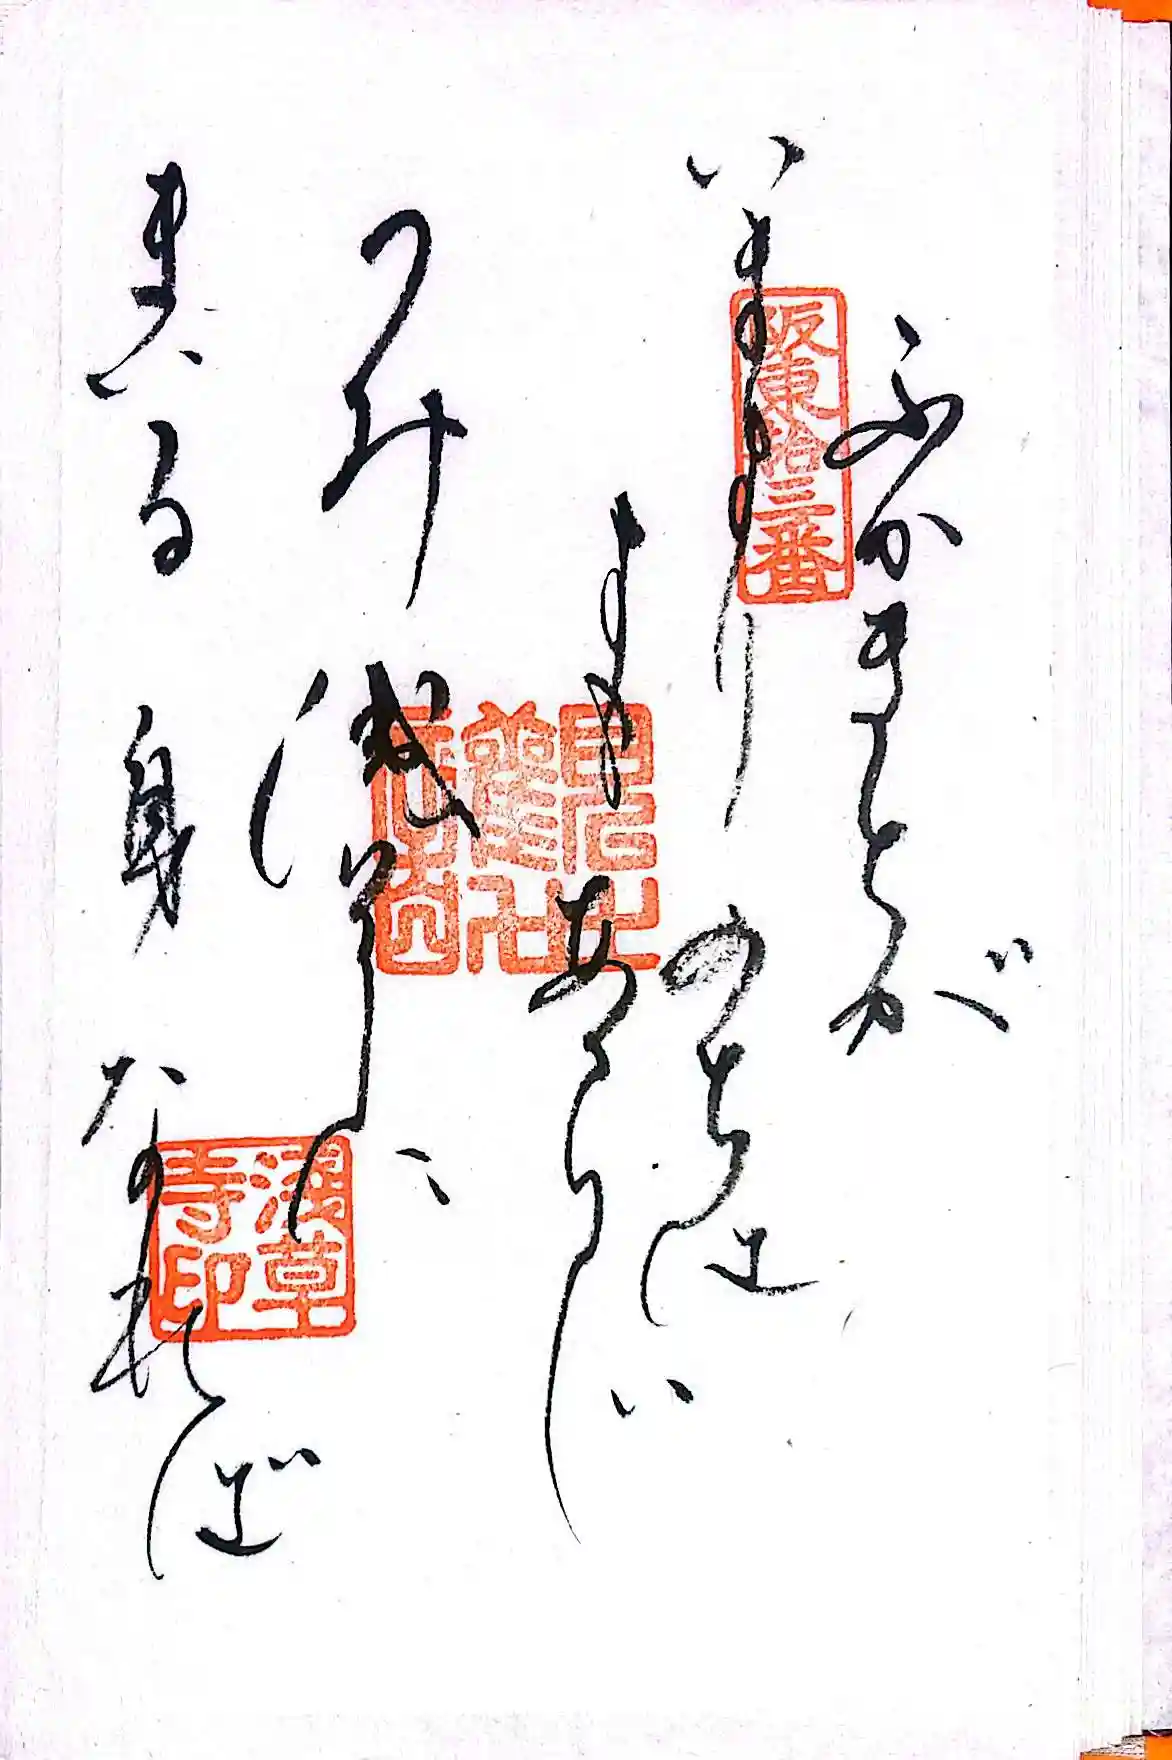 阪東拾三番
ふかきとが
いまより のちは
よも あらじ
つみ 浅草に
まいる身なれば
浅草寺印